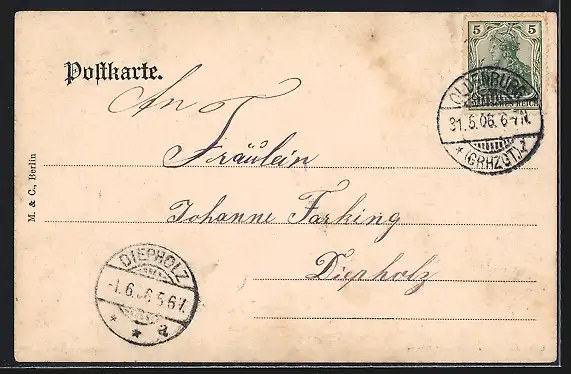 5 5
REICH
OLDENBURG
31.5.06.6-7N.
* (GRHZGT.) 1
Postkarte.
An
Fräulein
Johanne Farking
Diepholz
M. & C., Berlin
DIEPHOLZ
-1.6.06.5.6V.
* * a